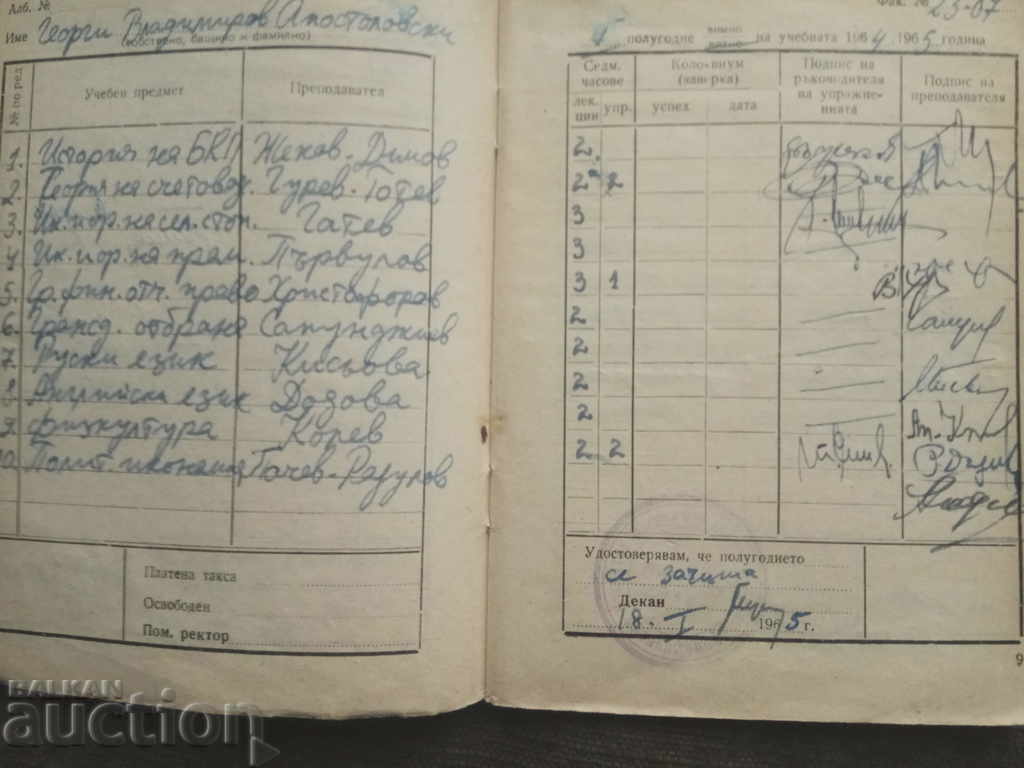 Алб. №
Име Георги Владимиров Апостоловски
(собствено, бащино и фамилно)
№ по ред
Учебен предмет
Преподавател
1. История на БКП Жеков - Димов
2. Теория на счетовод. Гурев - Тотев
3. Ик. и ор. на сел. стоп. Гатев
4 Ик. и ор. на пром. Първулов
5. Гр. фин. отч. право Христофоров
6. Гражд. отбрана Сапунджиев
7 Руски език Кисьова
8. Английски език Додова
9. Физкултура Корев
10 Полит. икономия Гочев - Радулов
Платена такса
Освободен
Пом. ректор
Фак. № 23-07
полугодие зимно на учебната 1964 1965 година
Седм. часове
лекции
упр.
Колоквиум
успех
дата
Подпис на ръководителя на упражненията
Подпис на преподавателя
2.
2 2
3
3
3 1
2
2
2
2
2 2
Удостоверявам, че полугодието
се зачита
Декан
18. I 1965 г.
9
BALKAN
auction